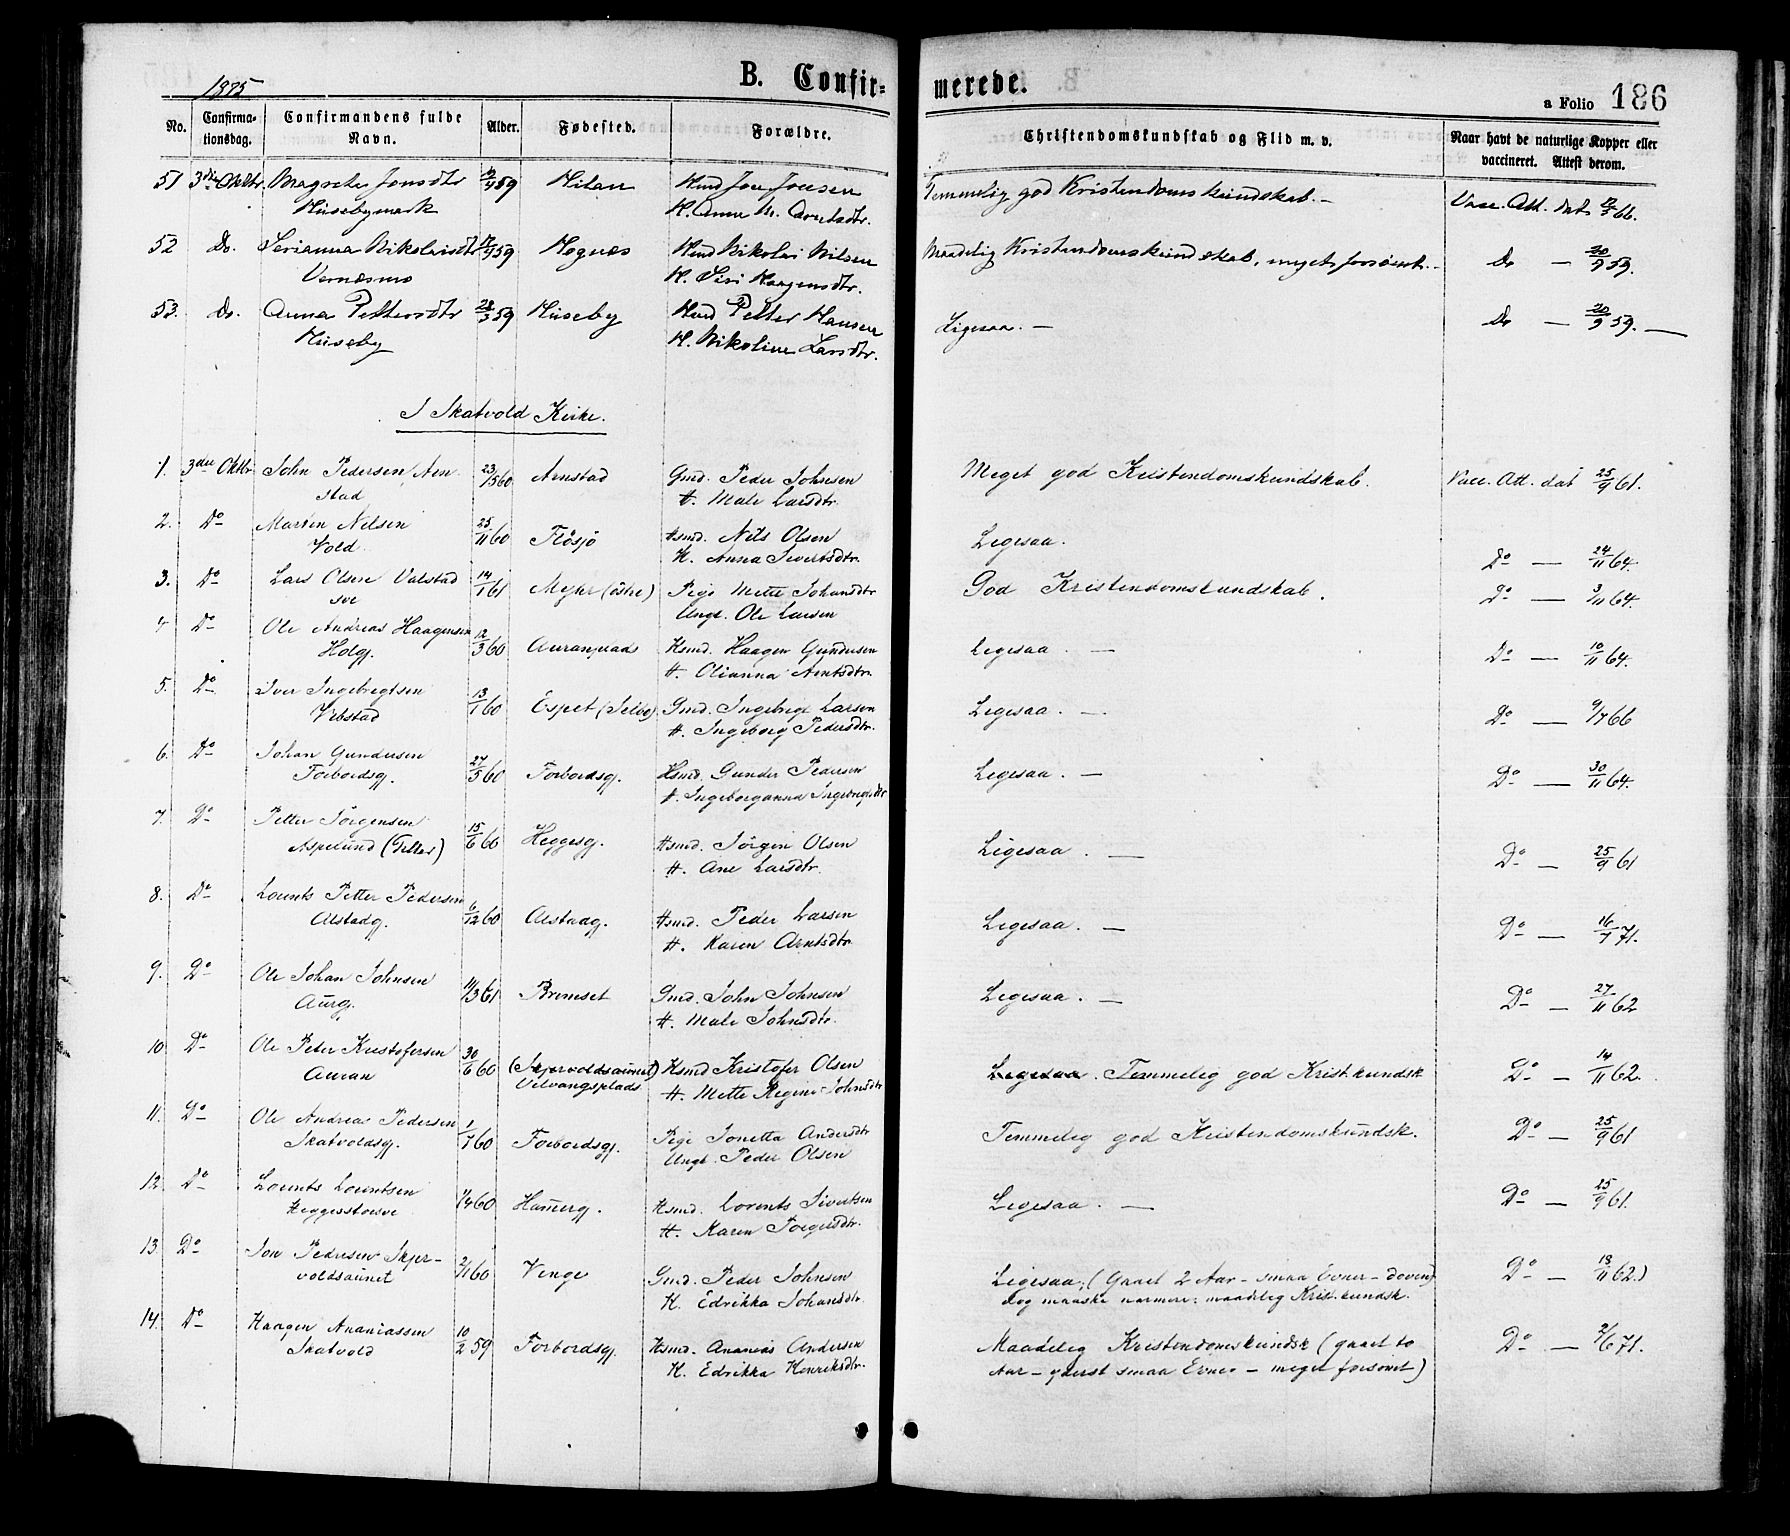 1875
B. Confir-
merede.
a Folio 186
No.
Confirma-
tionsdag.
Confirmandens fulde
Navn.
Alder.
Fødested.
Forældre.
Christendomskundskab og Flid m. v.
Naar havt de naturlige Kopper eller
vaccineret. Attest derom.
51 3die Oktbr. Magrete Jonsdtr 59 Hilan Hmd Jon Jonsen Temmelig god Kristendomskundskab. Vacc. Att. dat. 66.
Husebymark H. Anne M. Arntsdtr.
52 Do. Serianna Nikolaisdtr 59 Hognes Hmd Nikolai Nilsen Maadelig Kristendomskundskab, meget forsömt. Do — 20/9 59.
Vernesmo H. Siri Haagensdtr.
53. Do. Anna Pettersdtr 28/3 59 Huseby Hmd Petter Hansen Ligesaa. — Do — 20/9 59. —
Huseby H. Nikoline Larsdtr.
I Skatvold Kirke.
1. 3die Oktbr John Pedersen Arn- 23/5 60 Arnstad Gmd. Peder Johnsen Meget god Kristendomskundskab. Vacc. Att. dat 25/9 61.
stad H. Male Larsdtr.
2. Do Morten Nilsen 25/11 60 Flösjö Hsmd. Nils Olsen Ligesaa. Do — 24/11 64.
Vold. H. Anna Sivertsdtr.
3. Do Lars Olsen Valstad 14/1 61 Myhr (östre) Pige Mette Johansdtr God Kristendomskundskab. Do — 3/11 64.
sve Ungk. Ole Larsen
4 Do Ole Andreas Haagensen 12/3 60 Auranplads Hsmd. Haagen Gundersen Ligesaa. — Do — 10/11 64.
Holg. H. Olianna Arntsdtr.
5. Do Iver Ingebrigtsen 13/1 60 Espet (Selbo) Gmd. Ingebrigt Larsen Ligesaa. — Do — 9/7 66
Vibstad H. Ingeborg Pedersdtr.
6. Do Johan Gundersen 27/5 60 Forbordsg. Hsmd. Gunder Pedersen Ligesaa. — Do — 30/11 64.
Forbordsg. H. Ingeborganna Ingebrigtsdtr
7. Do Petter Jörgensen 15/6 60 Heggesg. Hsmd. Jörgen Olsen Ligesaa. — Do — 25/9 61
Aspelund (Tiller) H. Ane Larsdtr.
8. Do Lorents Petter Pedersen 6/12 60 Alstadg. Hsmd. Peder Larsen Ligesaa. — Do — 16/7 71.
Alstadg. H. Karen Arntsdtr.
9. Do Ole Johan Johnsen 11/3 61 Bremset Gmd. John Johnsen Ligesaa. — Do — 27/11 62
Aurg. H. Male Johnsdtr.
10 Do Ole Peter Kristofersen 30/6 60 (Skjervoldsaunet) Hsmd Kristofer Olsen Ligesaa. Temmelig god Krist.kundsk Do — 14/11 62.
Auran Velvangsplads H. Mette Regine Johnsdtr
11. Do Ole Andreas Pedersen 1/7 60 Forbordsg. Pige Jonetta Andersdtr Temmelig god Kristendomskundsk. Do — 25/9 61
Skatvoldsg. Ungk. Peder Olsen
12 Do Lorents Lorentsen 1/4 60 Hammerg. Hsmd. Lorents Sivertsen Ligesaa. — Do — 25/9 61.
Heggesstoere H. Karen Torgersdtr.
13. Do Jon Pedersen Skjer- 2/1 60 Venge Gmd. Peder Johnsen Ligesaa; (Gaaet 2 Aar – smaa Evner – doven) Do — 13/11 62.)
voldsaunet H. Edrikka Johansdtr. dog maaske nærmere: maadelig Krist.kundsk.
14. Do Haagen Ananiassen 10/2 59 Forbordsg. Hsmd. Ananias Andersen Maadelig Kristendomskundsk (gaaet to Do — 2/6 71.
Skatvold H. Edrikka Henriksdtr. Aar – yderst smaa Evner – meget forsömt)